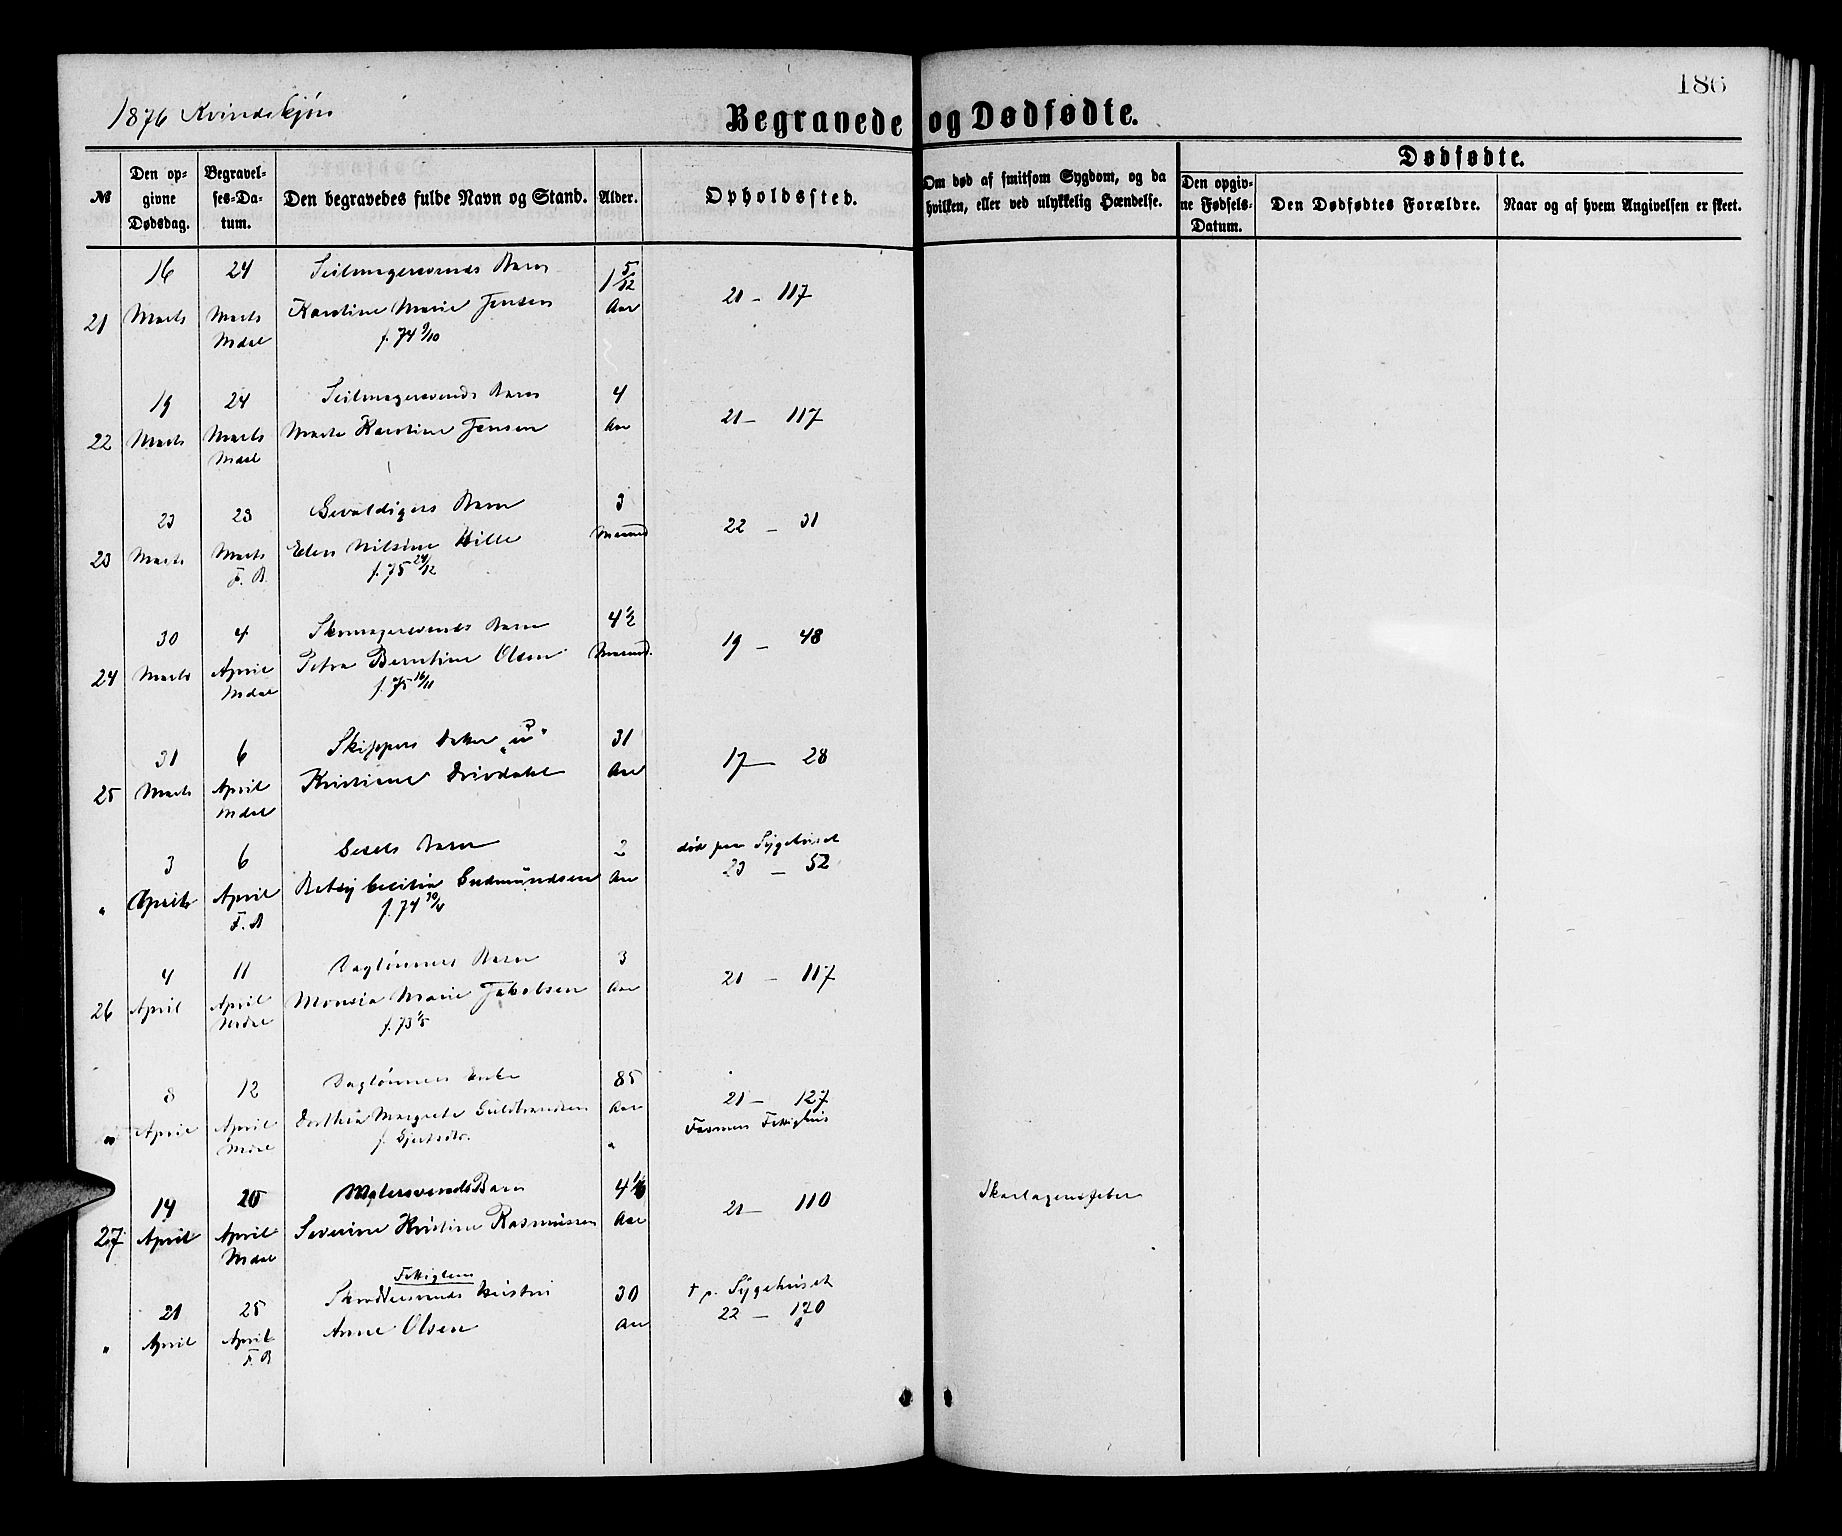 186
1876 Kvindekjön
Begravede og Dødfødte.
№
Den opgivne Dødsdag.
Begravelses-Datum.
Den begravedes fulde Navn og Stand.
Alder.
Opholdssted.
Om død af smitsom Sygdom, og da hvilken, eller ved ulykkelig Hændelse.
Dødfødte.
Den opgivne Fødsels-Datum.
Den Dødfødtes Forældre.
Naar og af hvem Angivelsen er skeet.
16 24 Seilmagersvends Barn 1 5/12
21 Marts Marts Karoline Marie Jensen Aar 21 - 117
Mdal f. 74 9/10
19 24 Seilmagersvends Barn 4
22 Marts Marts Karoline Jensen Aar 21 - 117
Mdal
23 28 Gevaldigers Barn 3
23 Marts Marts Elen Nilsine Hille Maaned 22 - 31
F. B. f. 75 24/12
30 4 Skomagersvends Barn 4 1/2
24 Marts April Petra Berntine Olsen Maaned. 19 - 48
Mdal f. 75 16/11
31 6 Skippers Datter „u" 31
25 Marts April Kristiane Aar 17 - 28
Mdal
3 6 Barn 2 død paa Sygehuset
" April April Betsy Cecilia Gudmundsen Aar 23 - 52
F. B f. 74
4 11 Daglönners Barn 3
26 April April Monsia Marie Jakobsen Aar 21 - 117
Mdal f. 73 1/5
8 12 Daglönners Enke 85
" April April Dorthea Margrete Guldbrandsen Aar 21 - 127
Mdal f. Gjertsdtr. " Fattighus
14 20 Malersvends Barn 4 Skarlagensfeber
27 April April Severine Kristine Rasmussen Aar 21 - 110
Mdal
Fattiglem
21 25 Skræddersvends Hustru 30 † p. Sygehuset
" April April Anne Olsen Aar 22 - 170
F. B